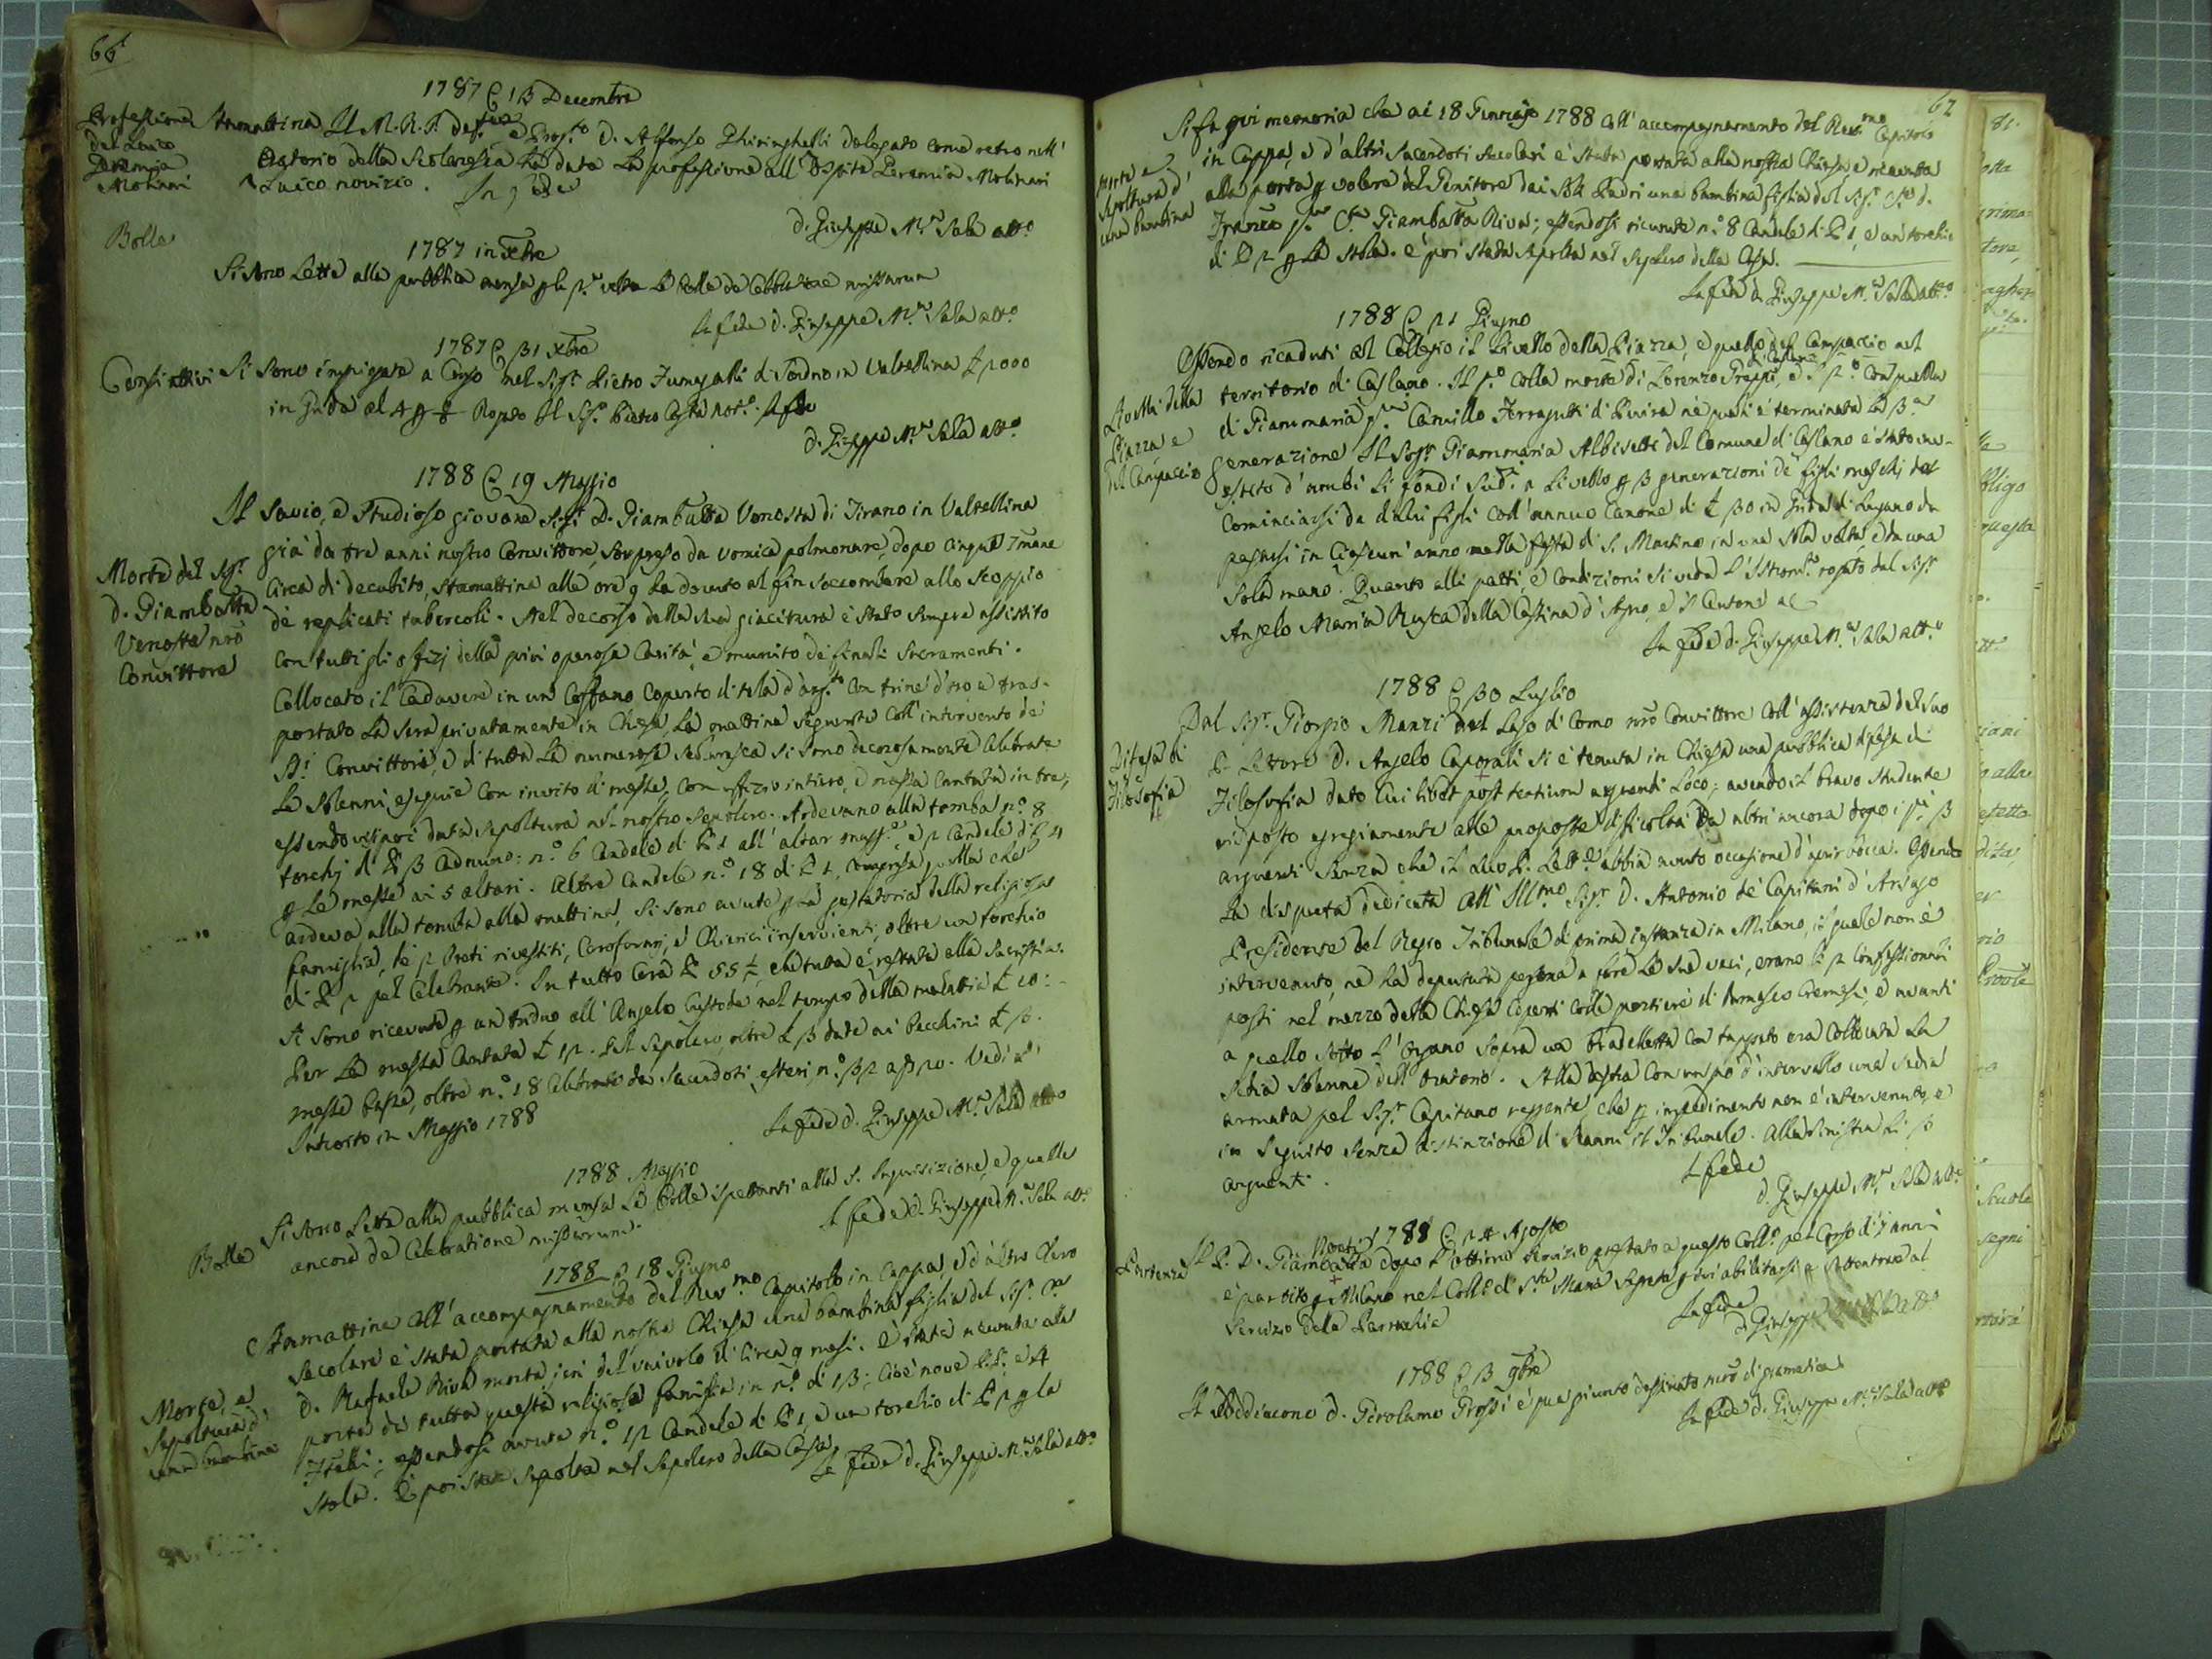 66
1787 13 Decembre
Professione del Laico Geremia Molinari
Stamattina Il M. R. P. e Prop.to D. Alfonso Ghiringhelli delegato come retro nell'
Oratorio della Scolaresca ha data la professione all' Ospite Geremia Molinari
Laico novizio. In fede
d. Giuseppe M.a Sala att.o
Bolle
1787 in Xbre
Si sono Lette alla pubblica mensa Le Bolle de Celebratione missarum
In fede d. Giuseppe M.a Sala att.o
1787 31 Xbre
Censi attivi
Si sono impiegate a Censo nel Sig.r Pietro Fumagalli di Sondrio in Valtellina £ 2000
in Grida al 4 Rogato Il Sig.r Pietro Not.o In fede
d. Giuseppe M.a Sala att.o
1788 19 Maggio
Morte del Sig.r d. Giambatta Venosta nro Convittore
Il Savio, e Studioso giovane Sig.r D. Giambatta Venosta di Tirano in Valtellina
già da tre anni nostro Convittore, sorpreso da vomica polmonare, dopo cinque
circa di decubito, stamattina alle ore 9 ha dovuto al fin soccombere allo scoppio
de replicati tubercoli. Nel decorso della sua giacitura è stato sempre assistito
con tutti gli ofizj della più operosa Carità, e munito de finali Sacramenti.
Collocato il Cadavere in un Coffano coperto di tela d'arg.to con trine d'oro e tras-
portato La sera privatamente in Chiesa, La mattina seguente coll' intervento de
SS.i Convittori, e di tutta La numerosa Scolaresca si sono decorosamente celebrate
Le Solenni esequie con invito di messe, con uffizio intiero, e messa Cantata in tre,
essendovisi poi data sepoltura nel nostro Sepolcro. Ardevano alla tomba n.o 8
torchj di 3 caduno: n.o 6 Candele di 1 all' altar magg.e, e 2 Candele di
Le messe ai 5 altari. Altre Candele n.o 18 di 1, compresa quella che
ardeva alla tomba alla mattina, si sono avute della religiosa
famiglia, de 2 Preti rivestiti, Ceroferarj, e Chierici inservienti, oltre un torchio
di 2 pel Celebrante. In tutto Cera 55 che tutta è restata alla Sacristia.
Si sono ricevute un triduo all' Angelo Custode nel tempo della malattia £ 10:
Per La messa Cantata £ 12. Pel Sepolcro, oltre £ 3 date ai becchini £ 3.
messe basse, oltre n.o 18 celebrate da Sacerdoti esteri, n.o 32 a 20. Vedi l'
Introito in Maggio 1788
In fede d. Giuseppe M.a Sala att.o
1788 Maggio
Bolle
Si sono Lette alla pubblica mensa Le Bolle spettanti alla S. Inquisizione, e quelle
ancora de Celebratione missarum.
In fede d. Giuseppe M.a Sala att.o
1788 18 Giugno
Morte, e Sepoltura d' una bambina
Stamattina coll' accompagnamento del Rev.mo Capitolo in Cappa, e d'altro Clero
Secolare è stata portata alla nostra Chiesa una bambina figlia del Sig.r
D. Rafaele Riva morta jeri del vaivolo di circa 9 mesi. È stata ricevuta alla
porta da tutta questa religiosa famiglia in n.o di 13; cioè nove P.P. e 4
Fratelli; essendosi avuta n.o 12 Candele di 1, e un torchio di 2 la
Stola. È poi stata sepolta nel Sepolcro della Casa.
In fede d. Giuseppe M.a Sala att.o
67
Morte e Sepoltura d' una bambina
Si fa qui memoria che ai 18 Gennajo 1788 coll' accompagnamento del Rev.mo Capitolo
in Cappa, e d'altri Sacerdoti secolari è stata portata alla nostra Chiesa e ricevuta
alla porta volere del Genitore dai Padri una bambina figlia del Sig.r d.
Franco Giambatta Riva; essendosi ricevute n.o 8 Candele di 1, e un torchio
di 2 La Stola. è poi stata sepolta nel Sepolcro della Casa.
In fede d. Giuseppe M.a Sala att.o
1788 21 Giugno
Livelli della Piazza e del Campaccio
Essendo ricaduti al Collegio il Livello della Piazza, e quello del Campaccio nel
territorio di Caslano. Il p.o colla morte di Lorenzo Greppi, e il 2.o con quella
di Giammaria Camillo Ferragutti di Pura nè quali è terminata La 3.a
generazione Il Sig.r Giammaria Albisetti del Comune di Caslano è stato inve-
stito d'ambi Li fondi a Livello 3 generazioni de figli maschj da
cominciarsi da dalui figli coll' annuo Canone di £ 30 in Grida di Lugano da
pagarsi in Ciascun' anno nella festa di S. Martino in una sola volta, e da una
sola mano. Quanto alli patti, e Condizioni si veda L' Istrom.to rogato dal Sig.r
Angelo Maria Rusca della Cassina d' Agno, e il
In fede d. Giuseppe M.a Sala att.o
1788 30 Luglio
Difesa di Filosofia
Dal Sig.r Giorgio Manzi del Lago di Como nro Convittore coll' assistenza del suo
P. Lettore D. Angelo Caporali si è tenuta in Chiesa una pubblica difesa di
Filosofia dato cuilibet post tertium arguendi Loco; avendo il bravo studente
risposto egregiamente alle proposte difficoltà da altri ancora dopo i 3
arguenti senza che il suo P. Lett.e abbia avuto occasione d'aprir bocca. Essendo
La disputa dedicata all' Ill.mo Sig.r D. Antonio de Capitani d' Arsago
Presidente del Regio Tribunale di prima instanza in Milano, il quale non è
intervenuto, ne ha deputata persona a fare Le sue veci, erano Li 2 Confessionali
posti nel mezzo della Chiesa coperti colle portiere di damasco Cremesi, e avanti
a quello sotto L' Organo sopra una bradelletta con tappeto era collocata La
Sedia Solenne dell' Oratorio. Alla destra con un po' d' intervallo una Sedia
armata pel Sig.r Capitano reggente che impedimento non è intervenuto, e
in seguito senza distinzione di Scanni il Tribunale. Alla Sinistra Li 3
arguenti.
In fede
d. Giuseppe M.a Sala att.o
1788 24 Agosto
Partenza
Il P. D. Giambatta dopo L' ottimo Servizio prestato a questo Coll.o pel Corso di 7 anni
è partito Milano nel Coll.o di S.ta Maria Segreta ivi abilitarsi e sottentrare al
Servizio della Parrochia
In fede
d. Giuseppe M.a Sala att.o
1788 3 9bre
Il Suddiacono d. Girolamo Grossi è qua giunto destinato nro di gramatica
In fede d. Giuseppe M.a Sala att.o